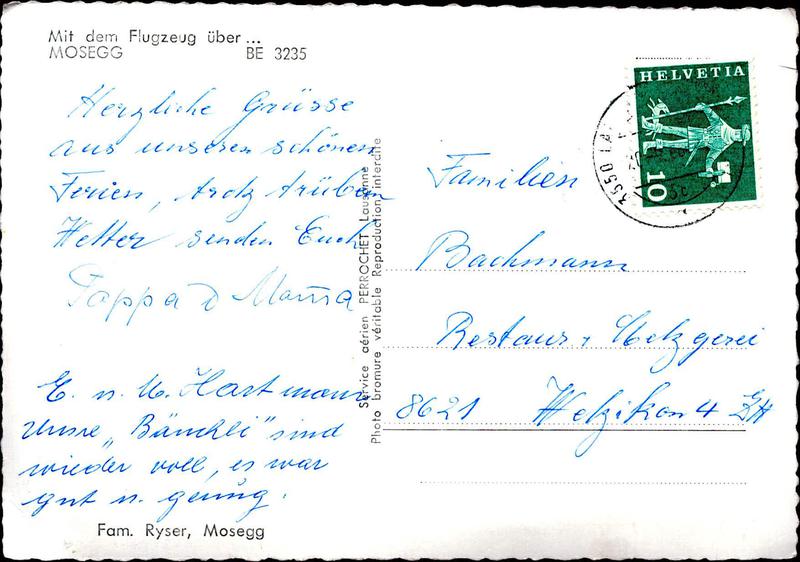 Mit dem Flugzeug über...
MOSEGG BE 3235
Herzliche Grüsse
aus unseren schönen
Ferien, trotz trüben
Wetter senden Euch
Pappa & Mama
E. u. U. Hartmann
Unsre „Bäuchli" sind
wieder voll, es war
gut u. genug.
Fam. Ryser, Mosegg
Service aérien PERROCHET Lausanne
Photo bromure véritable Reproductions interdite
HELVETIA
10
3550 LA
Familien
Bachmann
Restaur. Metzgerei
8621 Wetzikon 4 ZH